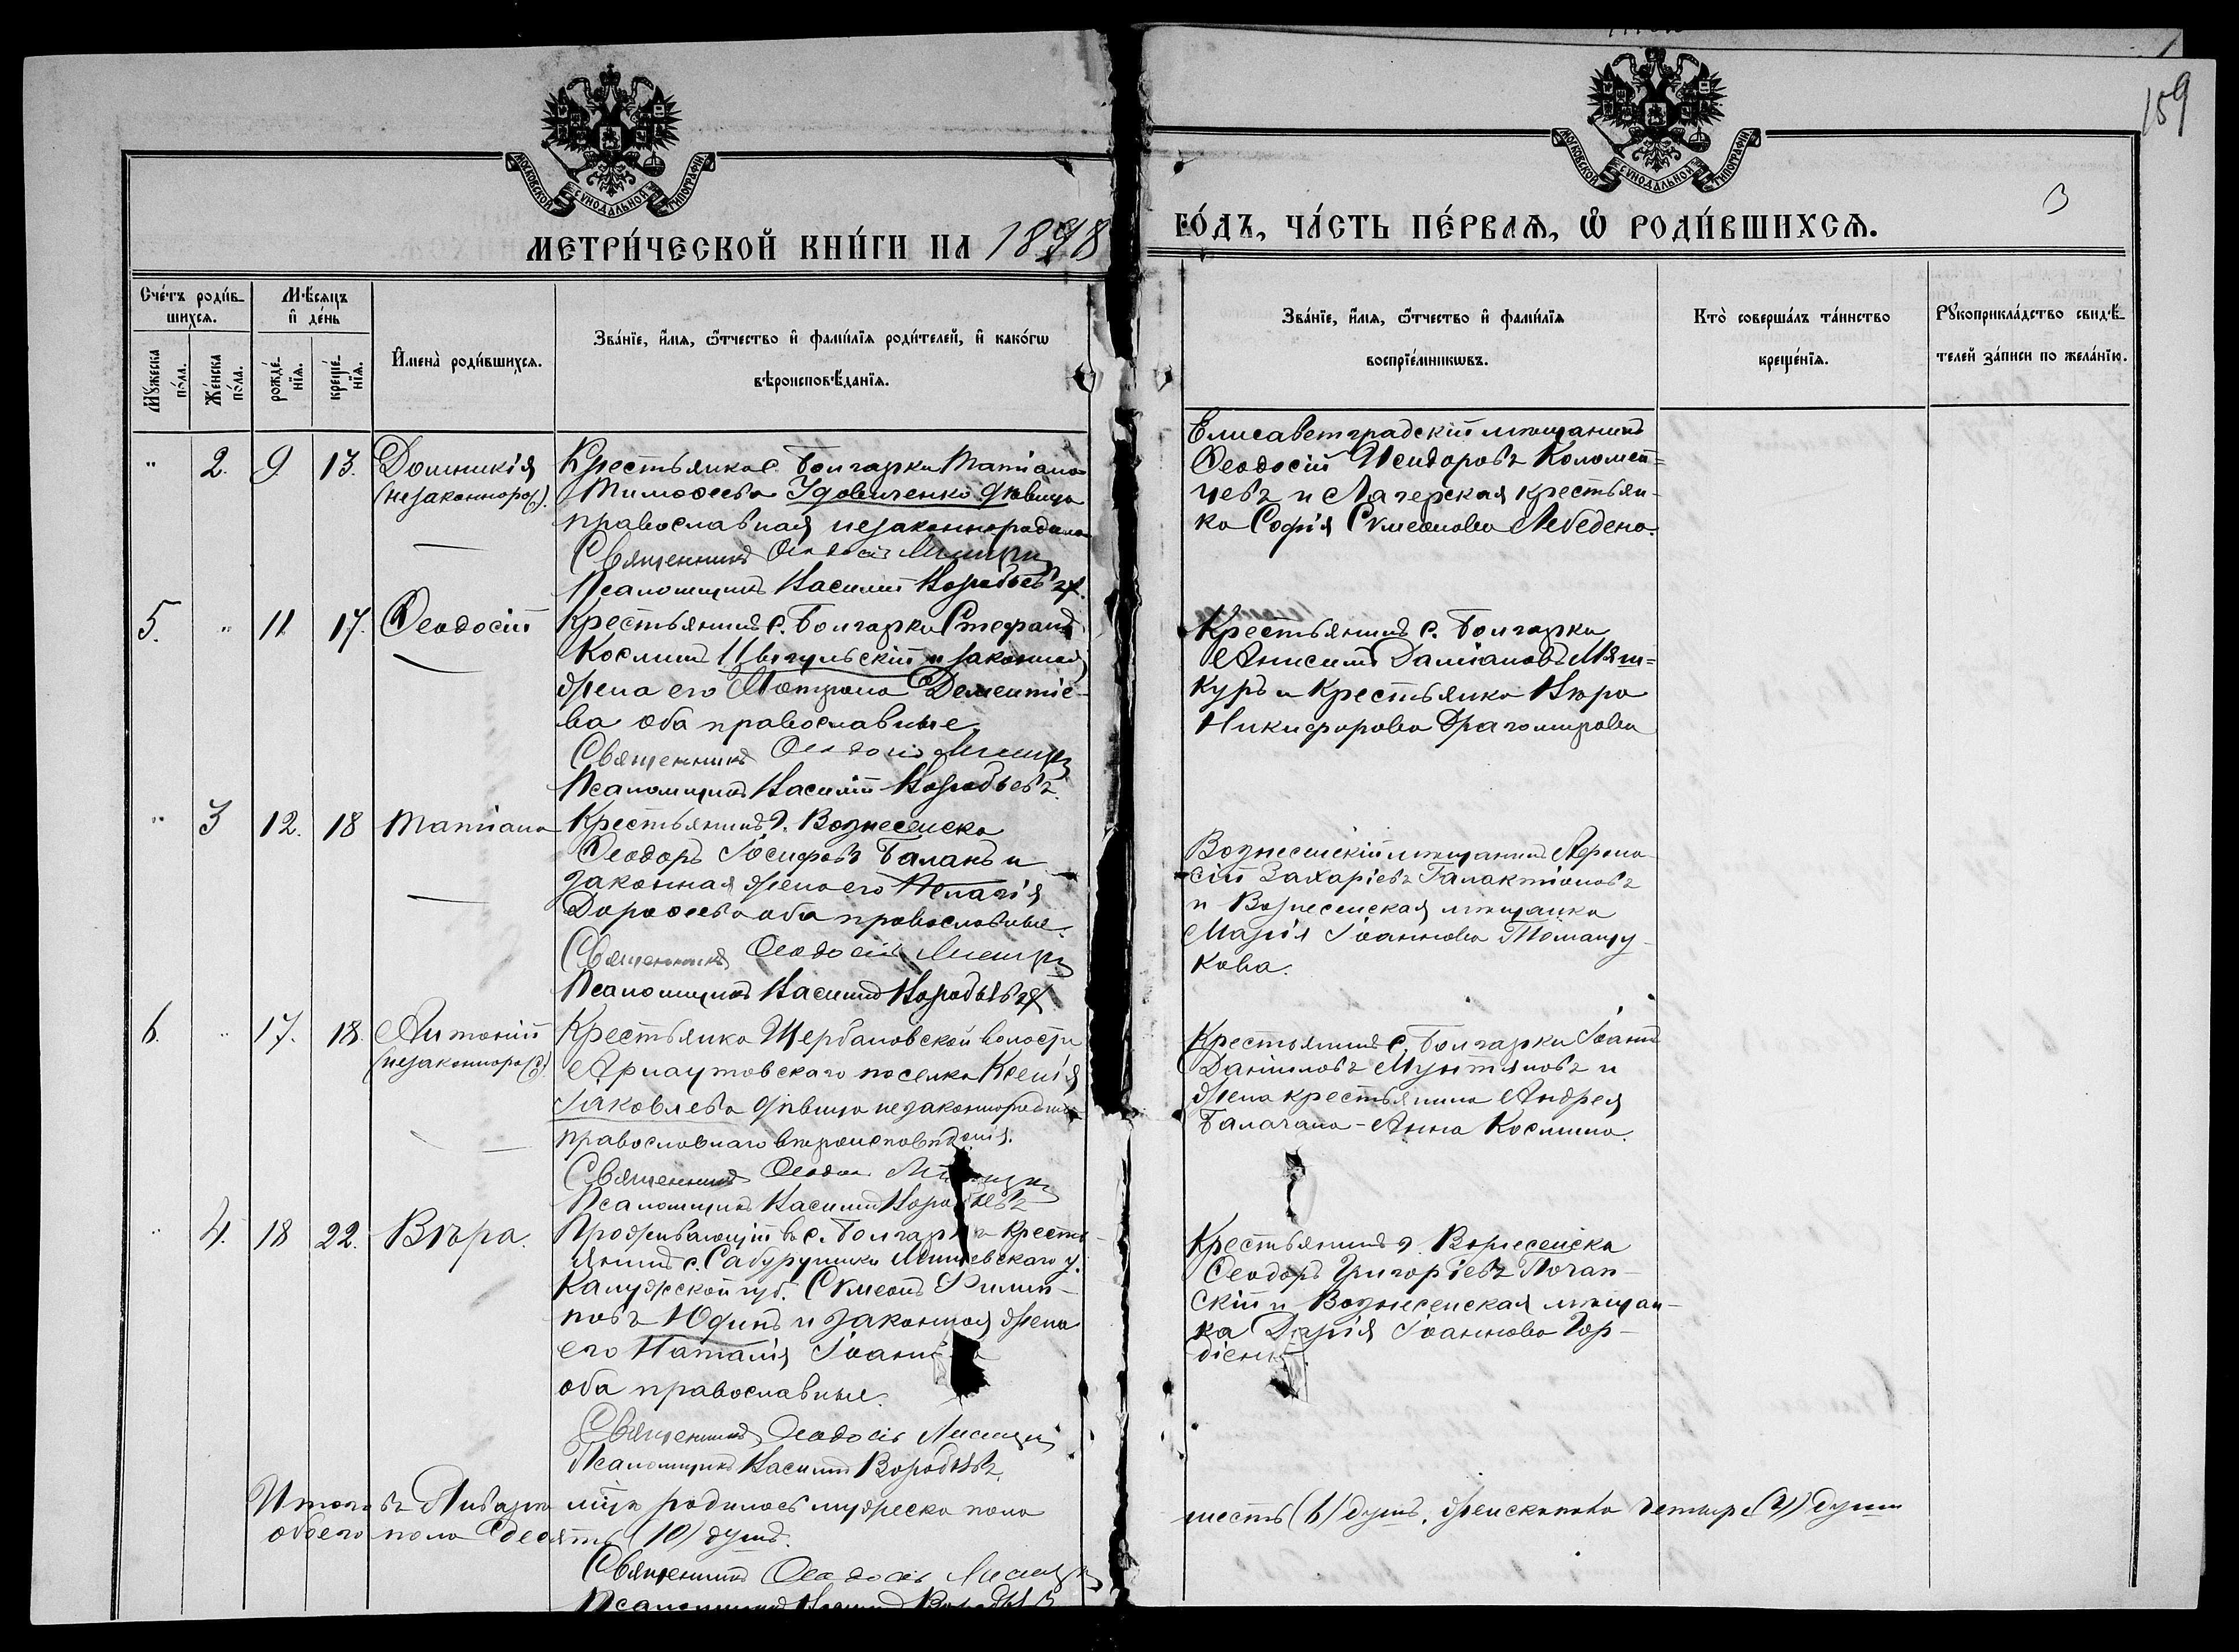 159
3
МОСКОВСКОЙ СѴНОДАЛЬНОЙ ТИПОГРАФІИ
МОСКОВСКОЙ СѴНОДАЛЬНОЙ ТИПОГРАФІИ
МЕТРИ́ЧЕСКОЙ КНИ́ГИ НА 1898
ГО́ДЪ, ЧА́СТЬ ПЕ́РВАѦ, Ѡ РОДИ́ВШИХСѦ.
Сче́тъ роди́в-
шихсѧ.
Мꙋ́жеска
по́ла.
Же́нска
по́ла.
Мѣ́сѧцъ
и҆ де́нь
рожде́-
нїѧ.
креще́-
нїѧ.
И҆мена̀ роди́вшихсѧ.
Зва́нїе, и҆́мѧ, ѻ҆́тчество и҆ фамѝлїѧ роди́телей, и҆ како́гѡ
вѣроисповѣ́данїѧ.
Зва́нїе, и҆́мѧ, ѻ҆́тчество и҆ фамѝлїѧ
воспрїе́мникѡвъ.
Кто̀ соверша́лъ та́инство
креще́нїѧ.
Рꙋкоприкла́дство свидѣ́-
телей за́писи по жела́нїю.
" 2. 9 13. Домникія
(незаконнорожд.)
Крестьянка с. Болгарки Татіана
Тимофеева Удовиченко дѣвица
православная незаконнородила
Священникъ Ѳеодосій
Псаломщикъ Василій Воробьевъ
Елисаветградскій мѣщанинъ
Ѳеодосій Исидоровъ Коломей=
цевъ и Лагерская крестьян-
ка Софія Сѵмеонова Лебедева.
5. " 11 17. Ѳеодосій
Крестьянинъ с. Болгарки Стефанъ
Косминъ Цвигульскій и законная
жена его Мотрона Дементіе-
ва оба православные
Священникъ Ѳеодосій
Псаломщикъ Василій Воробьевъ.
Крестьянинъ с. Болгарки
Анисимъ Даміановъ Мяш=
куръ и крестьянка Вѣра
Никифорова Драгомирова
" 3 12. 18 Татіана
Крестьянинъ г. Вознесенска
Ѳеодоръ Іосифовъ Баланъ и
законная жена его Пелагія
Дорофеева оба православные.
Священникъ Ѳеодосій
Псаломщикъ Василій Воробьевъ
Вознесенскій мѣщанинъ Афана-
сій Захаріевъ Галактіоновъ
и Вознесенская мѣщанка
Марія Іоаннова
кова.
6. " 17. 18. Антоній
(незаконнорожд.)
Крестьянка Щербановской волости
Арнаутовскаго поселка Ксенія
Іаковлева дѣвица незаконнородила
православнаго вѣроисповѣданія.
Священникъ Ѳеодосій
Псаломщикъ Василій Воробьевъ
Крестьянинъ с. Болгарки Іоаннъ
Даніиловъ Мунтяновъ и
жена крестьянина Андрея
Балагана - Анна Космина.
" 4. 18 22. Вѣра.
Проживающій въ с. Болгарка кресть-
янинъ с. Мещевскаго у.
Калужской губ. Сѵмеонъ Филип-
повъ Юдинъ и законная жена
его Наталія
оба православные.
Священникъ Ѳеодосій
Псаломщикъ Василій Воробьевъ.
Крестьянинъ г. Вознесенска
Ѳеодоръ Григоріевъ Почап-
скій и Вознесенская мѣщан-
ка Дарія Іоаннова Гор-
діенко.
Итого въ Январѣ м̃цѣ родилось мужеска пола
шесть (6) душъ, женска пола четыре (4) души
обоего пола десять (10) душъ.
Священникъ Ѳеодосій
Псаломщикъ Василій Воробьевъ